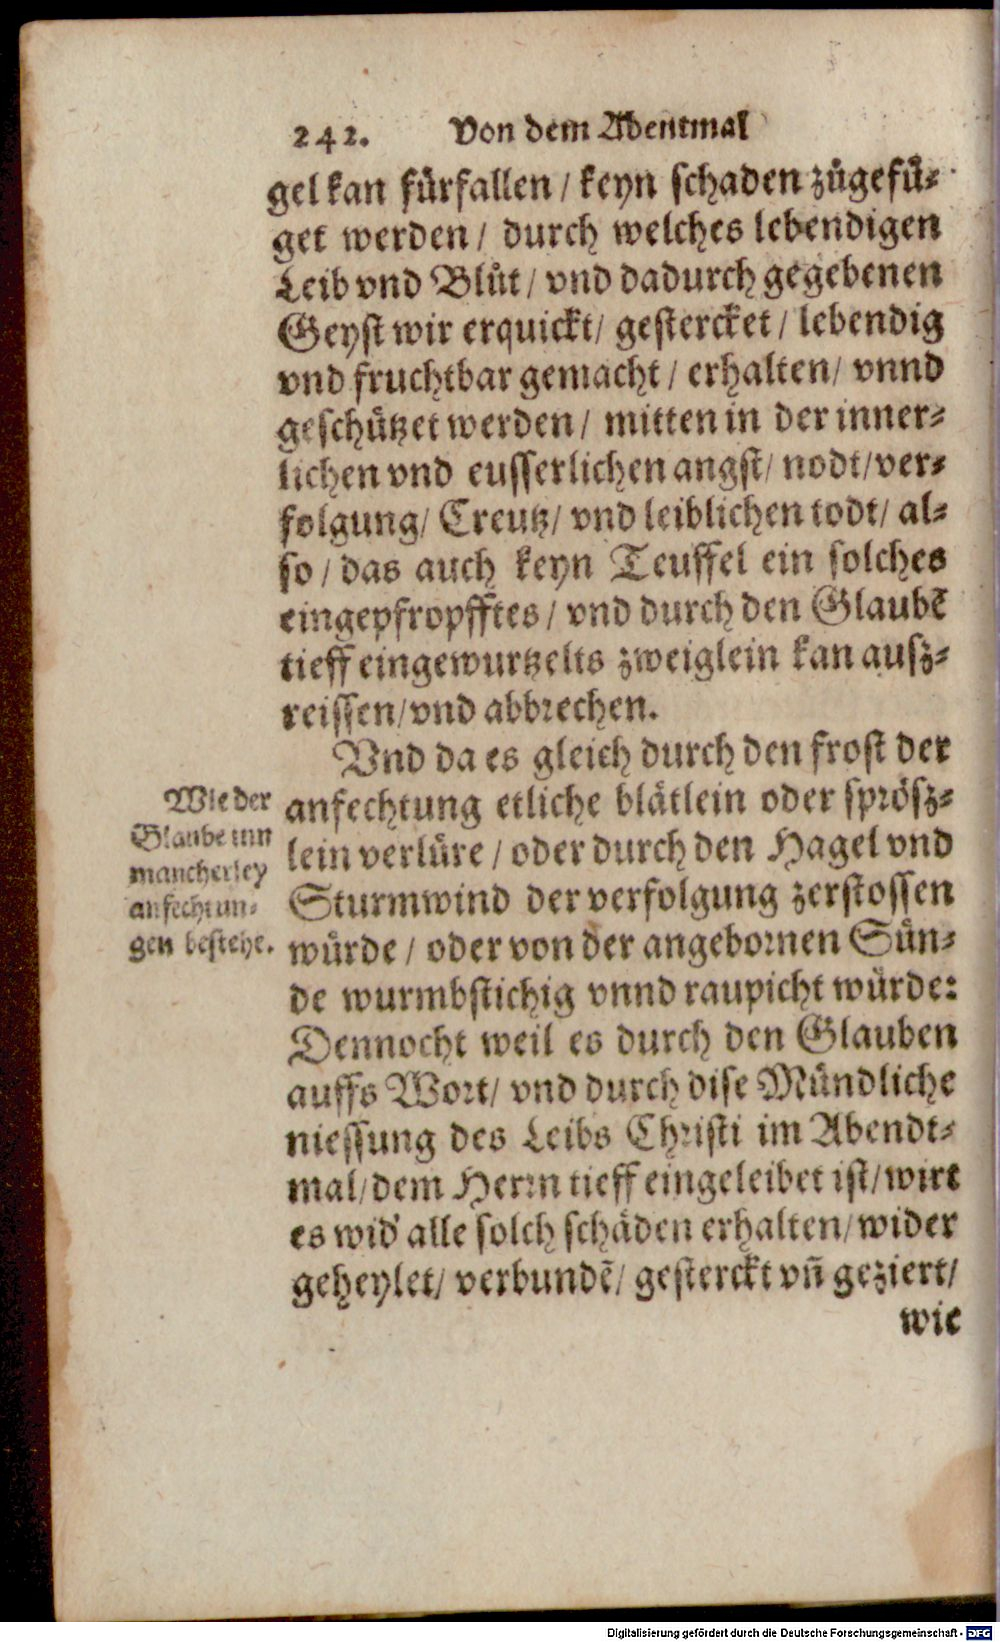 242. Von dem Abentmal
gel kan fürfallen / keyn schaden zůgefü⸗
get werden / durch welches lebendigen
Leib vnd Blůt / vnd dadurch gegebenen
Geyst wir erquickt / gestercket / lebendig
vnd fruchtbar gemacht / erhalten / vnnd
geschützet werden / mitten in der inner⸗
lichen vnd eusserlichen angst / nodt / ver⸗
folgung / Creutz / vnd leiblichen todt / al⸗
so / das auch keyn Teuffel ein solches
eingepfropfftes / vnd durch den Glaubē
tieff eingewurtzelts zweiglein kan ausz⸗
reissen / vnd abbrechen.
Vnd da es gleich durch den frost der
anfechtung etliche blätlein oder sprösz⸗
lein verlüre / oder durch den Hagel vnd
Sturmwind der verfolgung zerstossen
würde / oder von der angebornen Sün⸗
de wurmbstichig vnnd raupicht würde:
Dennocht weil es durch den Glauben
auffs Wort / vnd durch dise Mündliche
niessung des Leibs Christi im Abendt⸗
mal / dem Herrn tieff eingeleibet ist / wirt
es wid' alle solch schäden erhalten / wider
geheylet / verbundē / gesterckt vñ geziert /
wie
Wie der
Glaube inn
mancherley
anfechtun⸗
gen bestehe.
Digitalisierung gefördert durch die Deutsche Forschungsgemeinschaft - DFG